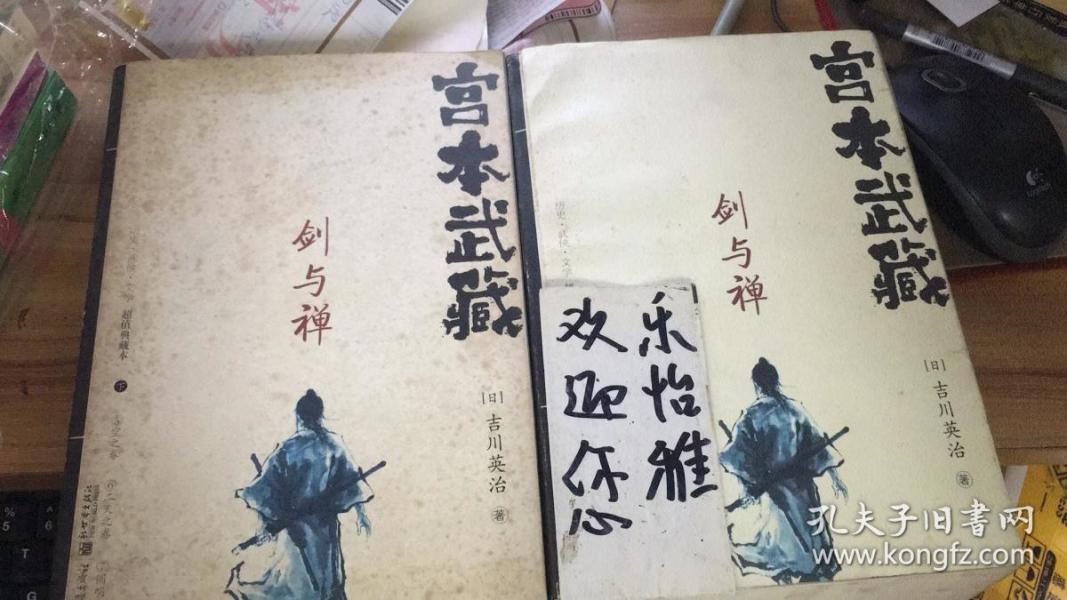 宫本武藏
剑与禅
超值典藏本
下
[日]吉川英治 著
⑥二天之卷
宫本武藏
剑与禅
[日]吉川英治 著
乐怡雅
欢迎你
孔夫子旧書网
www.kongfz.com
5
%
6
^
T
G